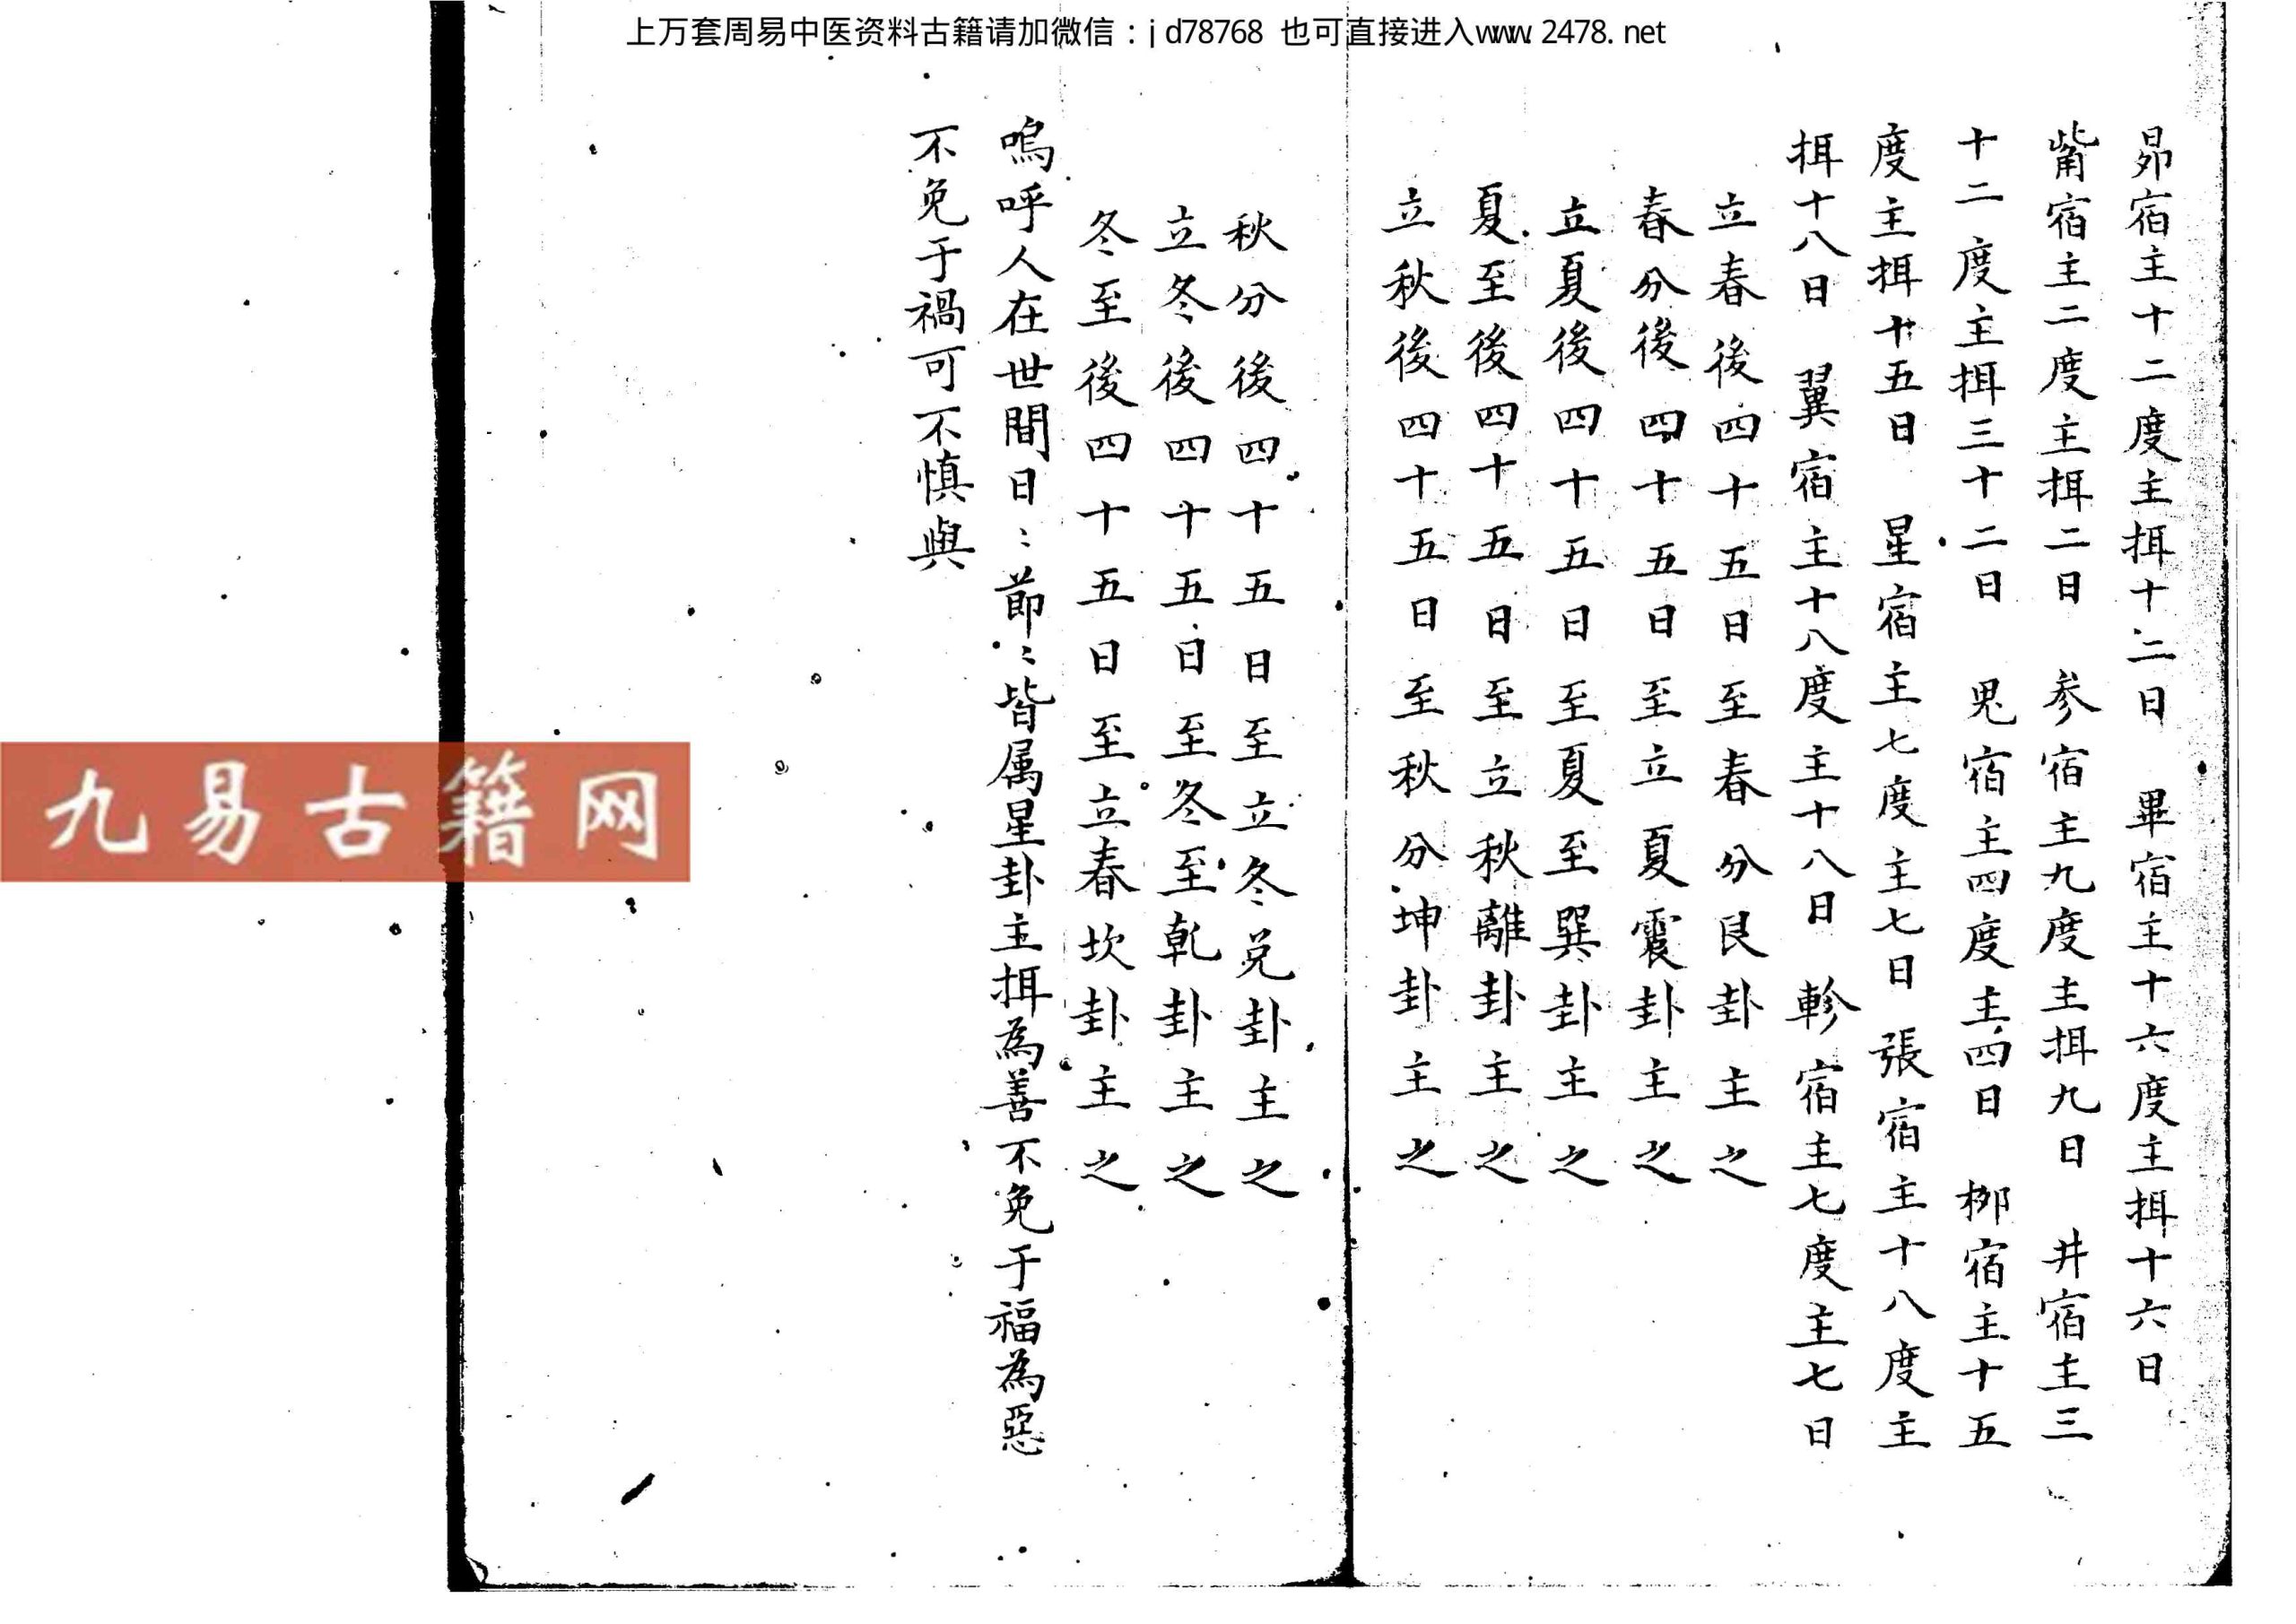 上万套周易中医资料古籍请加微信：jd78768 也可直接进入www.2478.net
昴宿主十二度主揖十二日 畢宿主十六度主揖十六日
觜宿主二度主揖二日 参宿主九度主揖九日 井宿主三
十二度主揖三十二日 鬼宿主四度主四日 栁宿主十五
度主揖十五日 星宿主七度主七日 張宿主十八度主
揖十八日 翼宿主十八度主十八日 軫宿主七度主七日
立春後四十五日至春分艮卦主之
春分後四十五日至立夏震卦主之
立夏後四十五日至夏至巽卦主之
夏至後四十五日至立秋離卦主之
立秋後四十五日至秋分坤卦主之
秋分後四十五日至立冬兑卦主之
立冬後四十五日至冬至乾卦主之
冬至後四十五日至立春坎卦主之
嗚呼人在世間日〻節〻皆属星卦主揖為善不免于福為惡
不免于禍可不慎與
九易古籍网